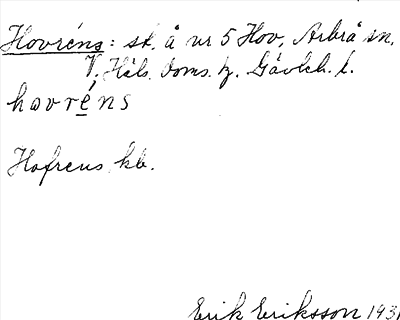 Hovréns: st. å nr 5 Hov, Arbrå sn,
V. Häls. doms. tg. Gävleb. l.
hovréns
Hofrens kb.
Erik Eriksson 1931